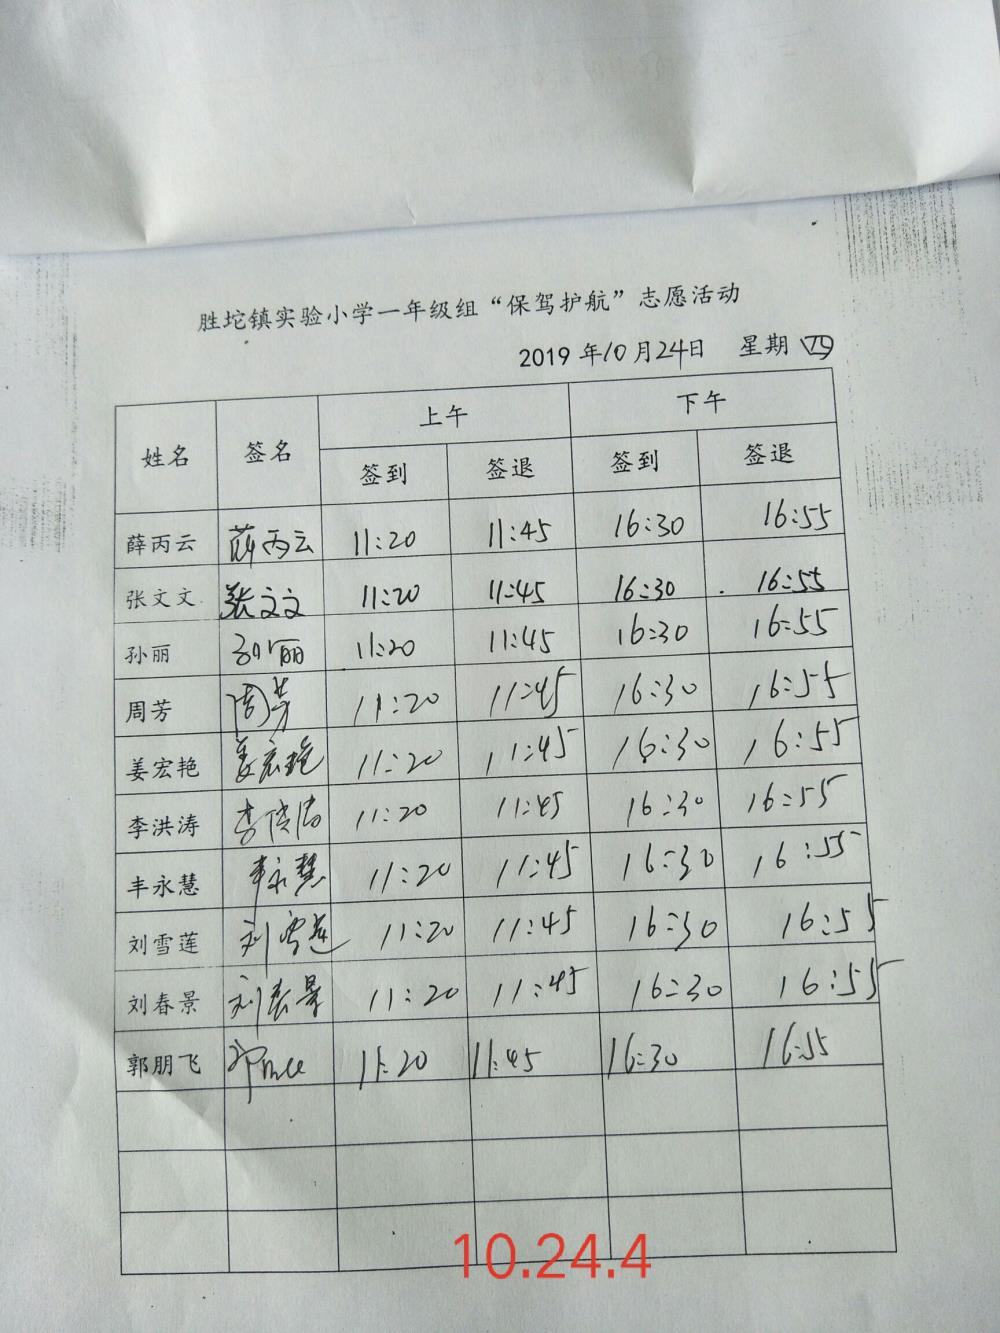 胜坨镇实验小学一年级组“保驾护航”志愿活动
2019 年10月24日 星期 四
姓名 签名 上午 下午
签到 签退 签到 签退
薛丙云 薛丙云 11:20 11:45 16:30 16:55
张文文 张文文 11:20 11:45 16:30 16:55
孙丽 孙丽 11:20 11:45 16:30 16:55
周芳 周芳 11:20 11:45 16:30 16:55
姜宏艳 姜宏艳 11:20 11:45 16:30 16:55
李洪涛 李洪涛 11:20 11:45 16:30 16:55
丰永慧 丰永慧 11:20 11:45 16:30 16:55
刘雪莲 刘雪莲 11:20 11:45 16:30 16:55
刘春景 刘春景 11:20 11:45 16:30 16:55
郭朋飞 11:20 11:45 16:30 16:55
10.24.4